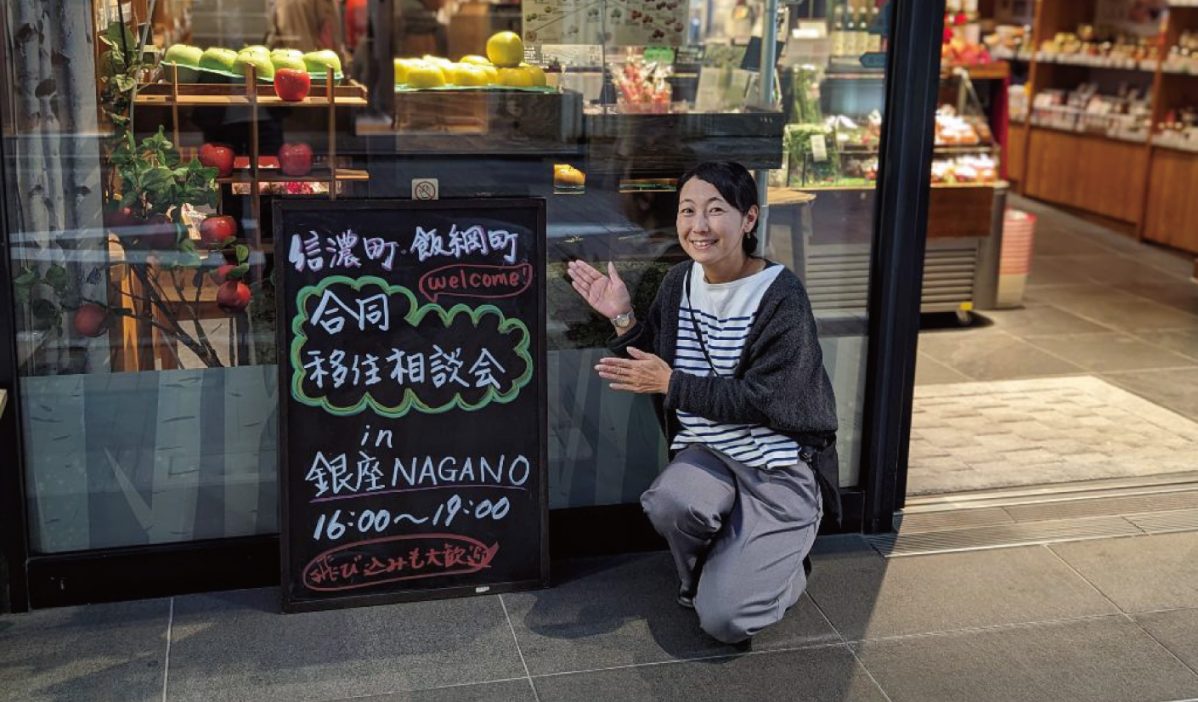 信濃町・飯綱町
welcome!
合同
移住相談会
in
銀座NAGANO
16:00〜19:00
飛び込みも大歓迎